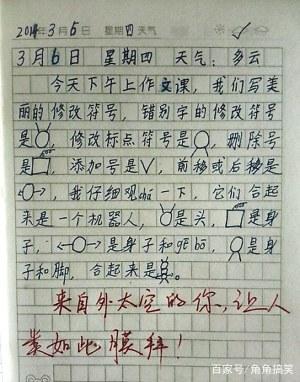 2014年3月6日 星期四 天气
3月6日 星期四 天气：多云
今天下午上作文课，我们写美
丽的修改符号，错别字的修改符号
是，修改标点符号是，删除号
是，添加号是√，前移或后移是
，我仔细观chá一下，它们合起
来是一个机器人，是头，是身
子，是身子和gē bo，是身
子和脚，合起来是。
来自外太空的你，让人
类如此膜拜！
百家号/角角搞笑